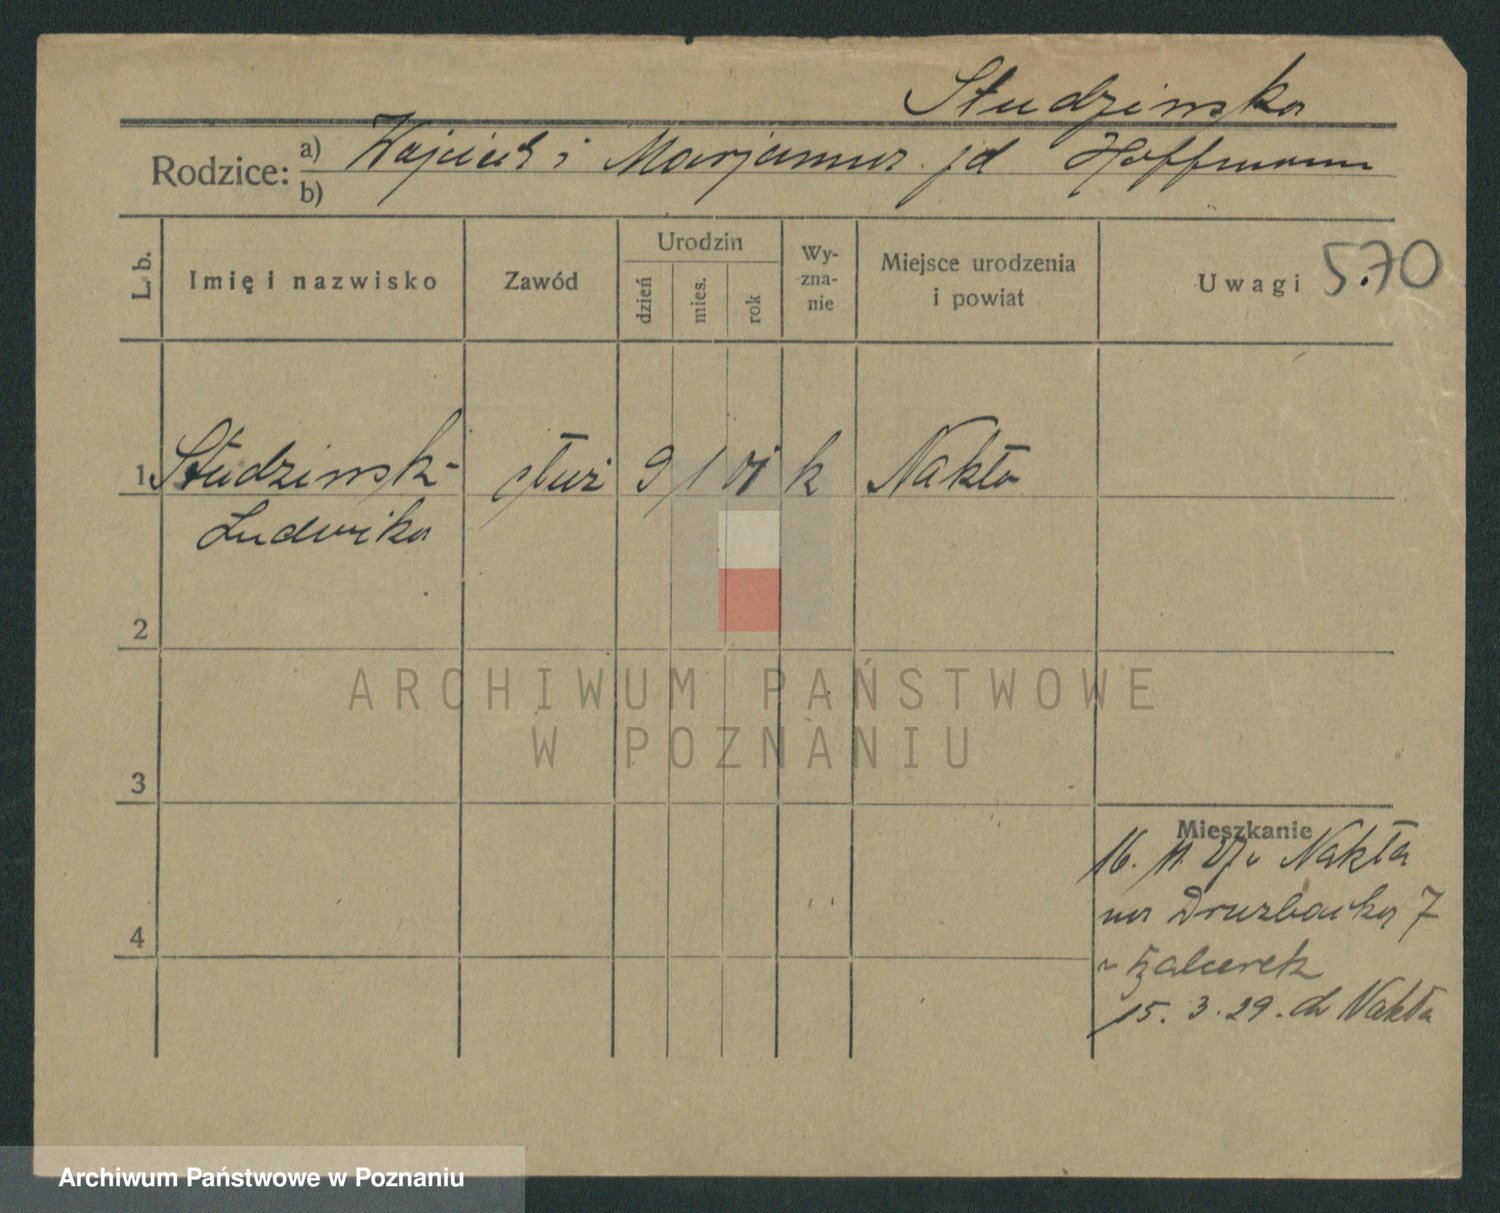 Studzinska
Rodzice: a) Wojciech i Marjanna zd Hoffmann
b)
L. b.
Imię i nazwisko
Zawód
Urodzin
dzień
mies.
rok
Wy-
zna-
nie
Miejsce urodzenia
i powiat
Uwagi
570
1 Studzinsk- służ 9 1 01 k Nakło
Ludwika
2
3
4
Mieszkanie
16. 11. 27 z Nakła
na Druzbacka 7
u
15. 3. 29. do Nakła
ARCHIWUM PAŃSTWOWE
W POZNANIU
Archiwum Państwowe w Poznaniu